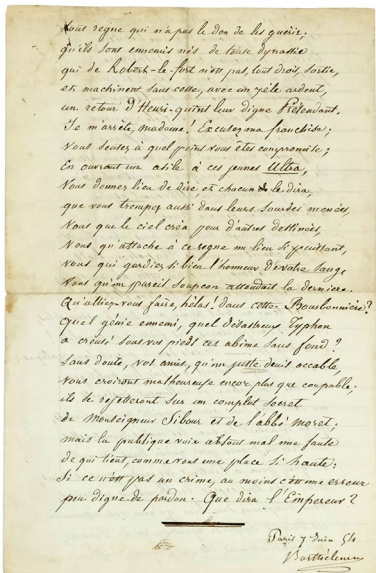 tout règne qui n'a pas le don de les guérir;
qu'ils sont ennemis nés de toute dynastie
qui de Robert-le-fort n'est pas, tout droit, sortie,
et machinent sans cesse, avec un zèle ardent,
un retour d'Henri-quint leur digne Prétendant.
Je m'arrête, madame! Excusez ma franchise;
Vous sentez à quel point vous êtes compromise;
En ouvrant un asile à ces jeunes Ultra,
Vous donnez lieu de dire, et chacun le dira,
que vous trempez aussi dans leurs sourdes menées,
Vous que le ciel créa pour d'autres destinées,
Vous qu'attache à ce règne un lien si puissant,
vous qui gardiez si bien l'honneur de votre sang,
Vous qu'un pareil soupçon atteindrait la dernière.
Qu'alliez-vous faire, hélas! dans cette Bourbonnière?
Quel génie ennemi, quel désastreux Typhon
a creusé sous vos pieds cet abîme sans fond?
Sans doute, vos amis, qu'un juste deuil accable,
vous croiront malheureuse encor plus que coupable;
ils le rejetteront sur un complot secret
de Monseigneur Sibour et de l'abbé moret;
mais la publique voix absout mal une faute
de qui tient, comme vous une place si haute;
Si ce n'est pas un crime, au moins c'est une erreur
peu digne de pardon. Que dira l'Empereur?
Paris 7 Juin 54
Barthélemy